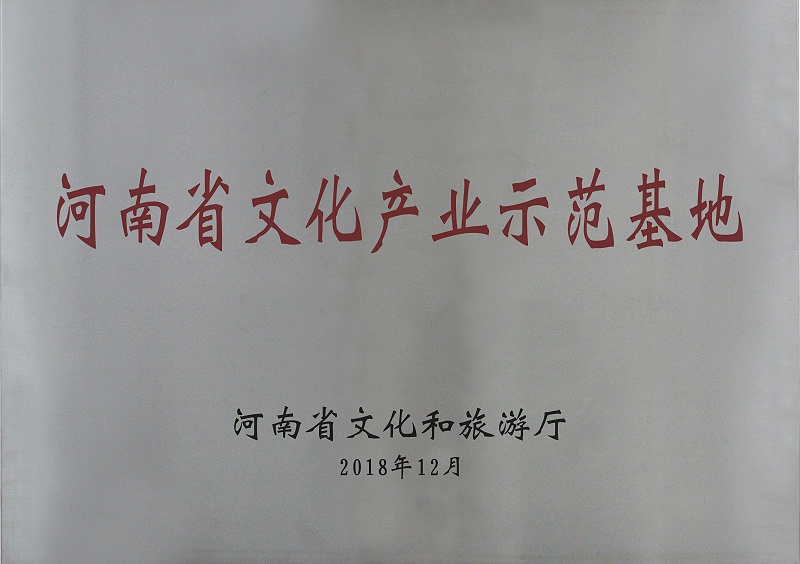 河南省文化产业示范基地
河南省文化和旅游厅
2018年12月